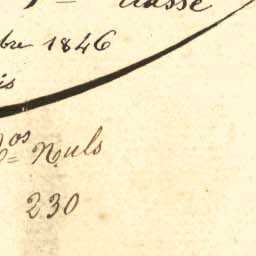 classe
bre 1846
is
Nos Nuls
230